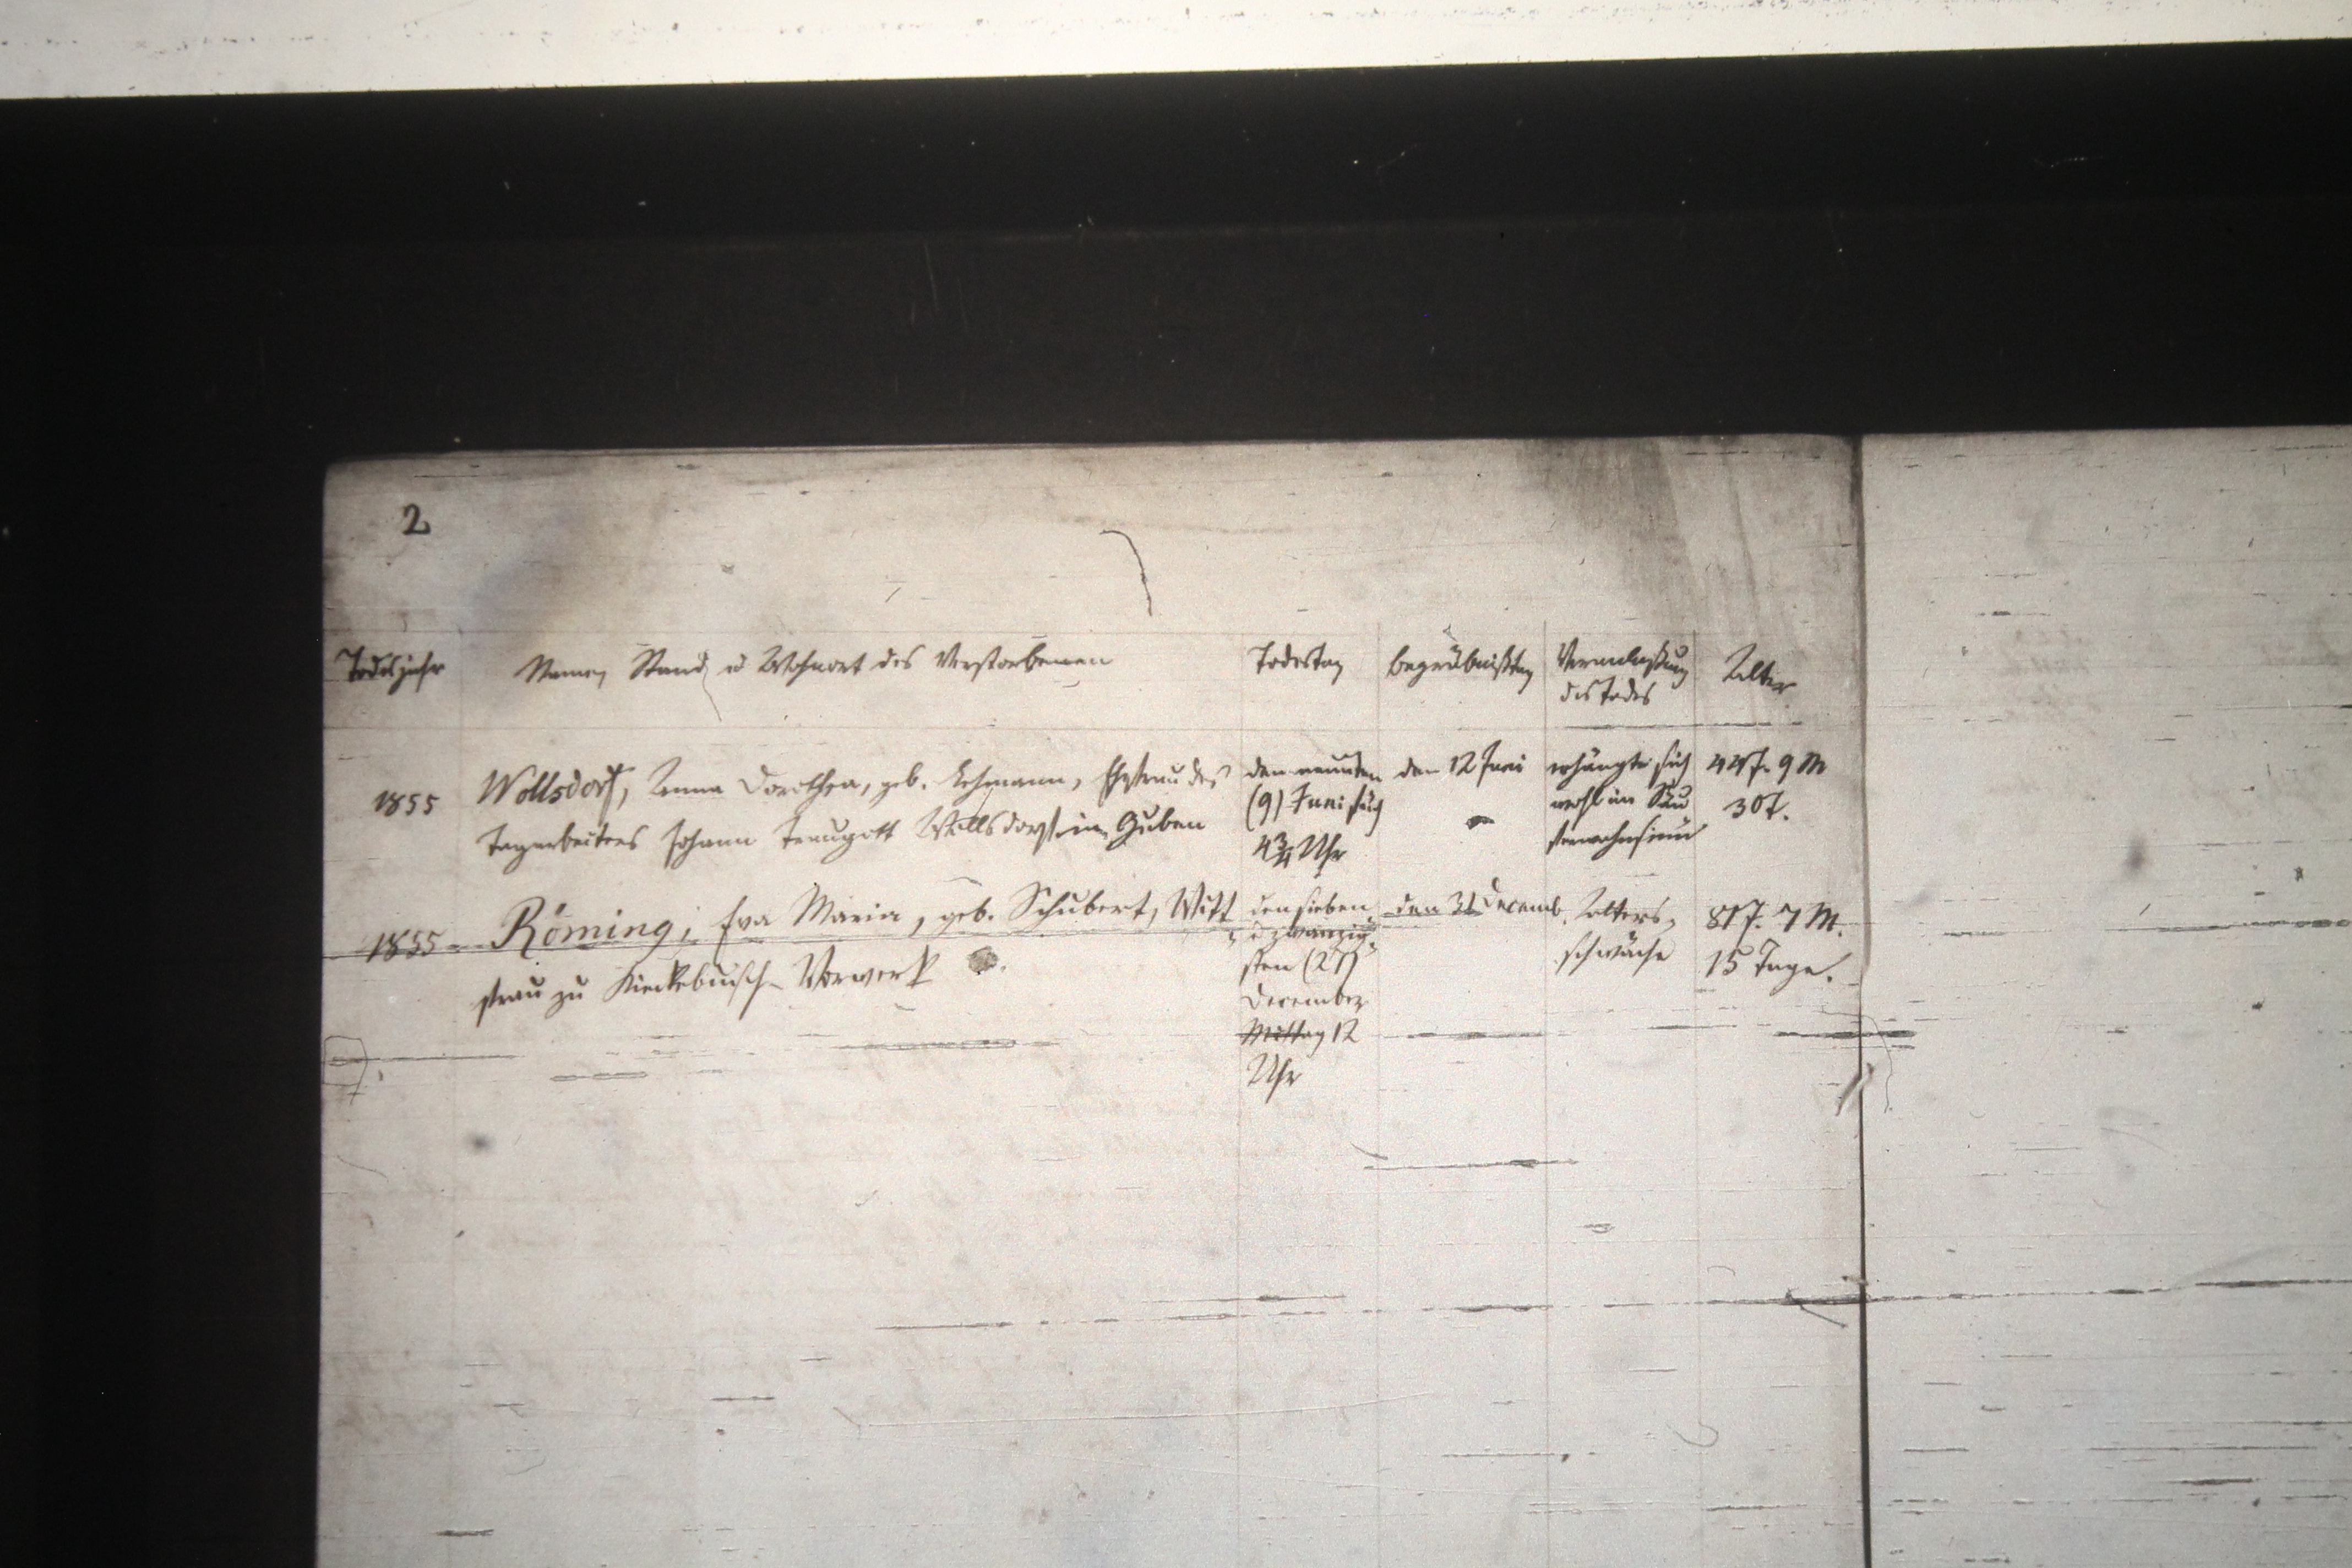 2
Todesjahr
Namen, Stand u Wohnort des Verstorbenen
Todestag
Begräbnißtag
Veranlaßung
des Todes
Alter
1855
Wollsdorf, Anna Dorothea, geb. Lehmann, Ehefrau des
Tagarbeiters Johann Traugott Wollsdorf in Guben
den neunten
(9) Juni früh
4¾ Uhr
den 12 Juni
erhängte sich
wohl im Säu
ferwahnsinn
44 J. 9 M
30 T.
1855
Röming, Eva Maria, geb. Schubert, Witt
frau zu Kiekebusch-Vorwerk
den sieben
u zwanzig-
sten (27)
December
Mittag 12
Uhr
den 31 Decemb.
Alters-
schwäche
81 J. 7 M.
15 Tage.